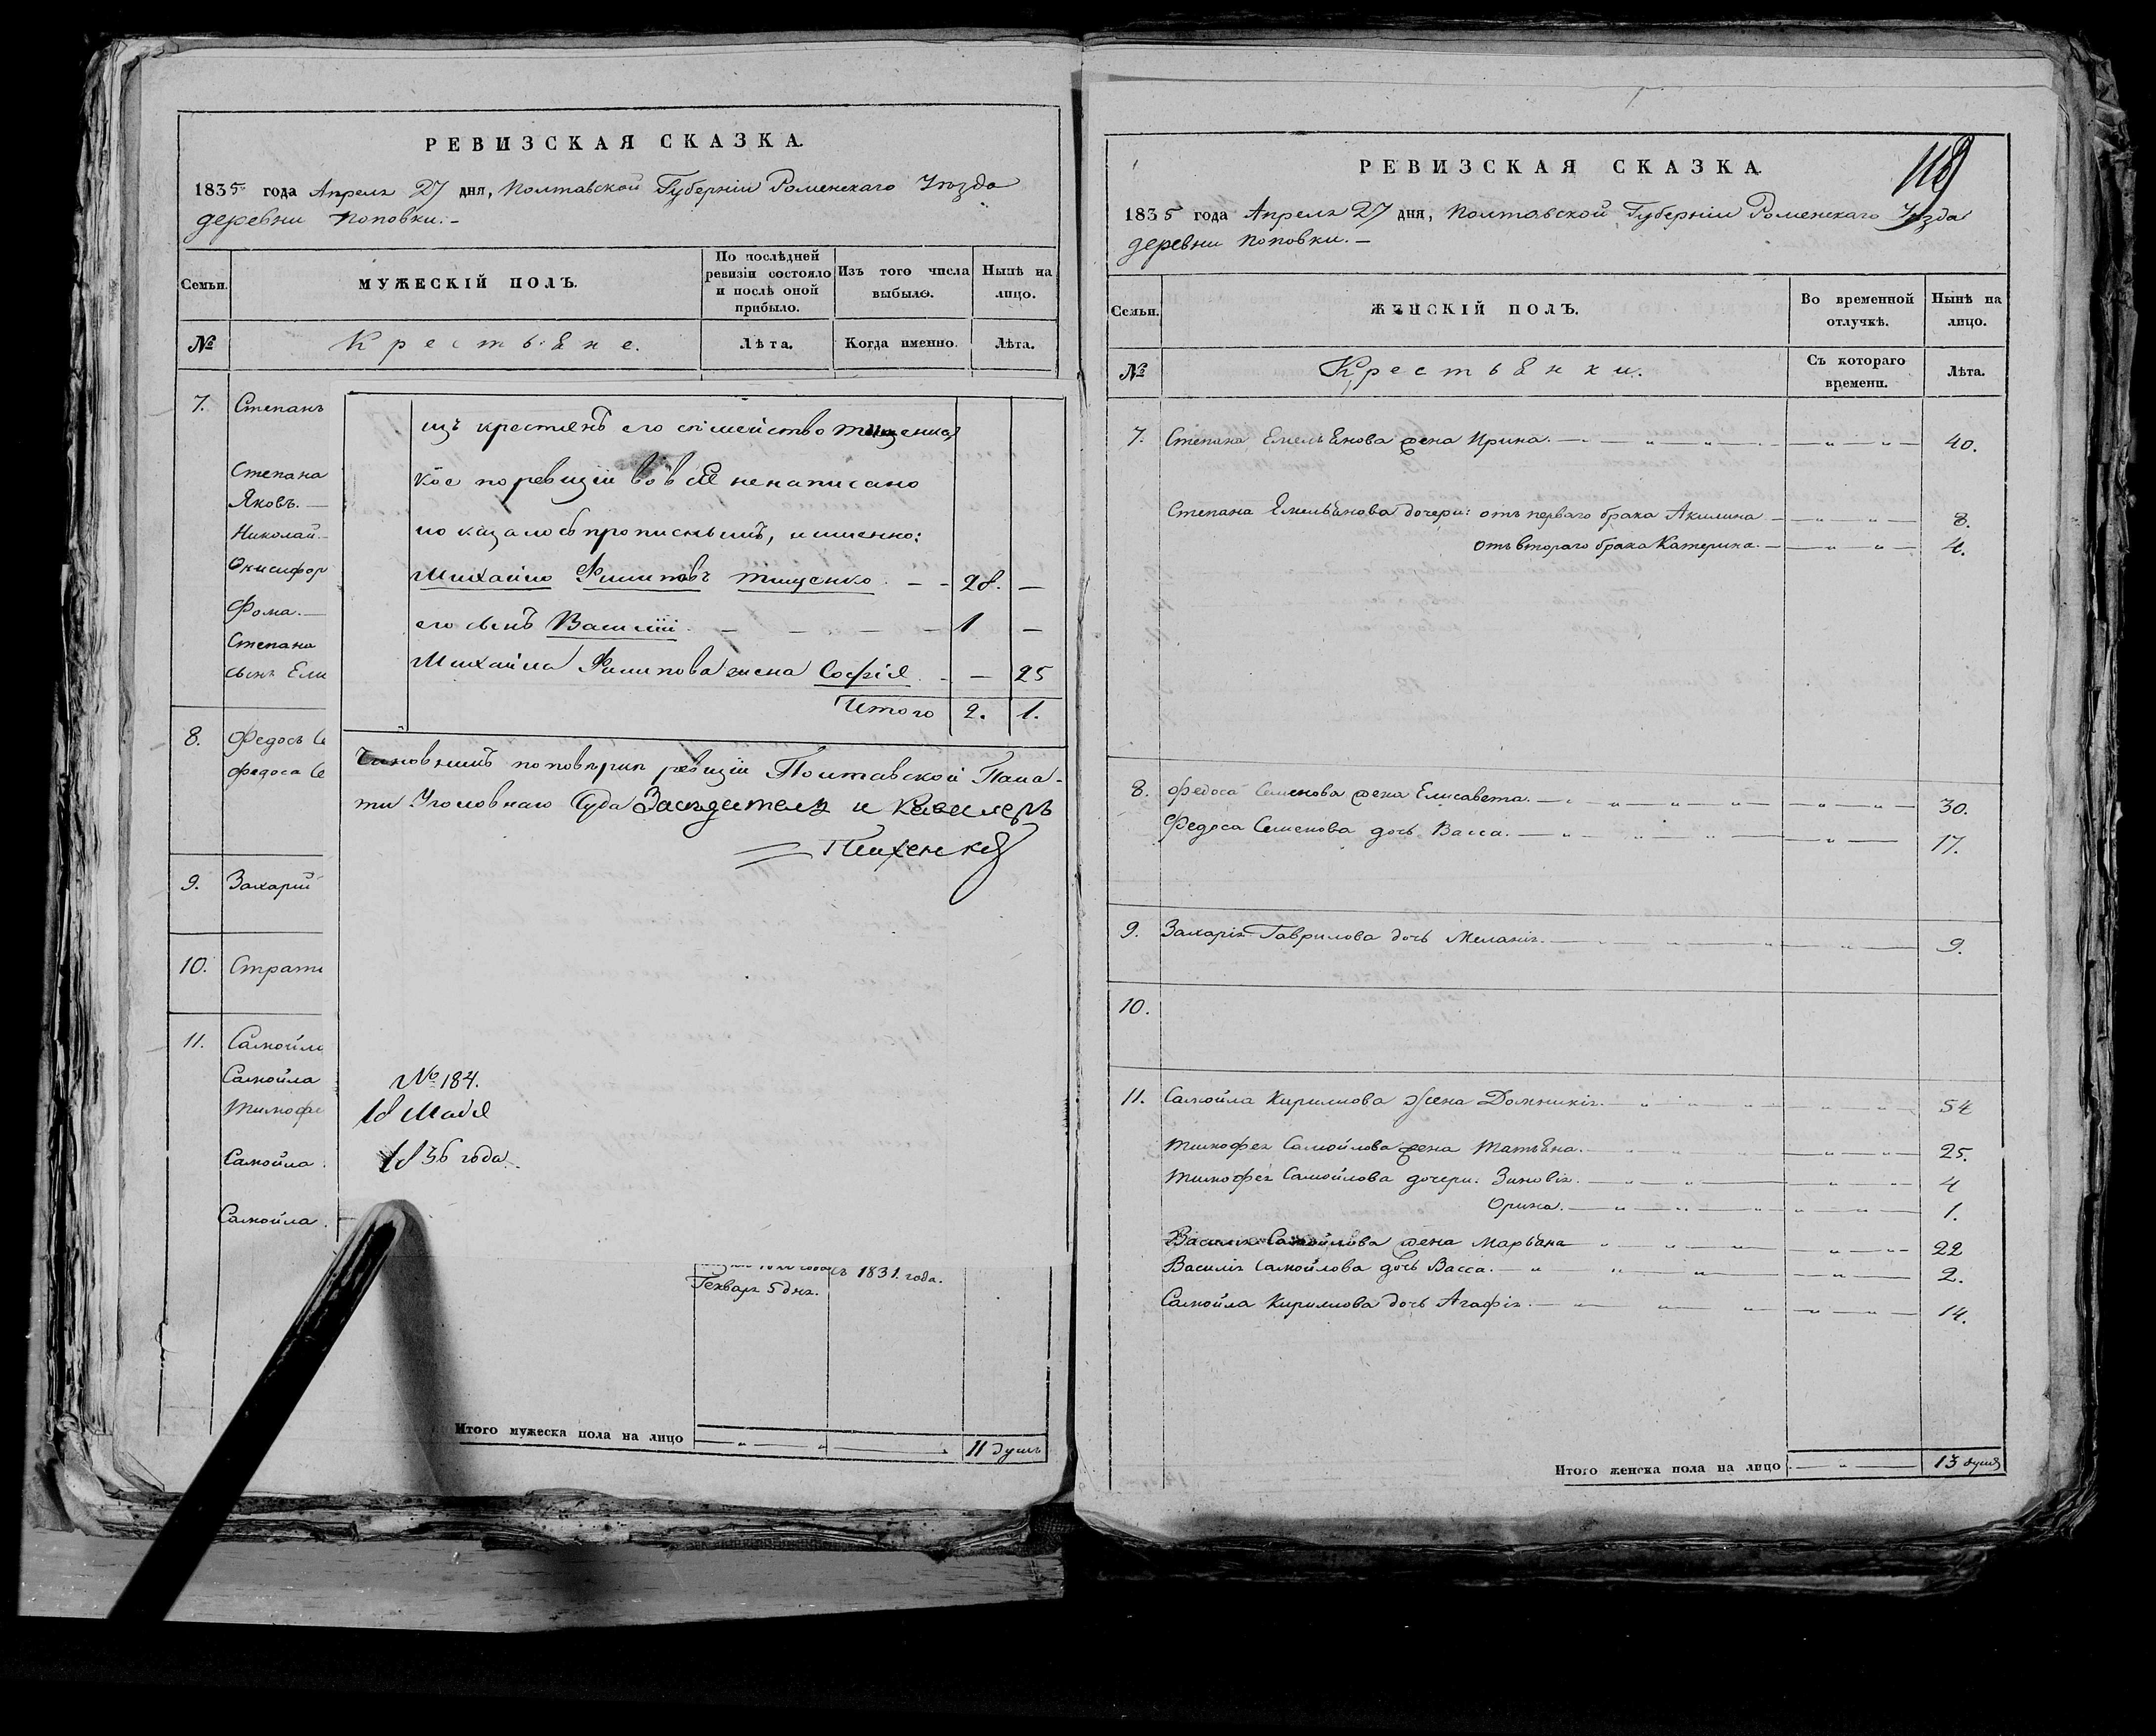 РЕВИЗСКАЯ СКАЗКА.
1835 года Апреля 27 дня, Полтавской Губерніи Роменскаго Уезда
деревни Поповки.-
Семьи.
МУЖЕСКІЙ ПОЛЪ.
По послѣдней ревизіи состояло и послѣ оной прибыло.
Изъ того числа выбыло.
Нынѣ на лицо.
№
Крестьяне.
Лѣта.
Когда именно.
Лѣта.
7. Степанъ
Степана
Яковъ.
Николай
Онисифор
Фома.
Степана
сынъ Ели
8. Федосъ Се
Федоса Се
9. Захарій
10. Страти
11. Самойло
Самойла
Тимофе
Самойла
Самойла
изъ крестянъ его семейство Тищенка
кое по ревизіи вовся ненаписано
показалось прописнымъ, именно:
Михайло Филиповъ Тищенко. - - 28. —
его сынъ Василій. — — — — 1 —
Михайла Филипова жена Софія - — 25
Итого 2. 1.
Чиновникъ поповѣрки ревизіи Полтавской Пала-
ты Уголовнаго Суда Заседатель и Кавалеръ
№ 184.
18 Маія
1836 года.
съ 1831. года.
Генваря 5 дня.
Итого мужеска пола на лицо — „ — „ — 11 душъ
РЕВИЗСКАЯ СКАЗКА.
1835 года Апреля 27 дня, Полтавской Губерніи Роменскаго Уезда
деревни Поповки.—
Семьи.
ЖЕНСКІЙ ПОЛЪ.
Во временной отлучкѣ.
Нынѣ на лицо.
№
Крестьянки.
Съ котораго времени.
Лѣта.
7. Степана Емельянова жена Ирина. 40.
Степана Емельянова дочери: отъ перваго брака Акилина 8.
отъ втораго брака Катерина. 4.
8. Федоса Семенова жена Елисавета. 30.
Федоса Семенова дочь Васса. 17.
9. Захарія Гаврилова дочь Меланія. 9.
10.
11. Самойла Кирилова жена Домникія. 54
Тимофея Самойлова жена Татьяна. 25.
Тимофея Самойлова дочери: Зиновія. 4
Орина. 1.
Василія Самойлова жена Марьяна 22
Василія Самойлова дочь Васса. 2.
Самойла Кирилова дочь Агафія. 14.
Итого женска пола на лицо — „ — 13 душъ